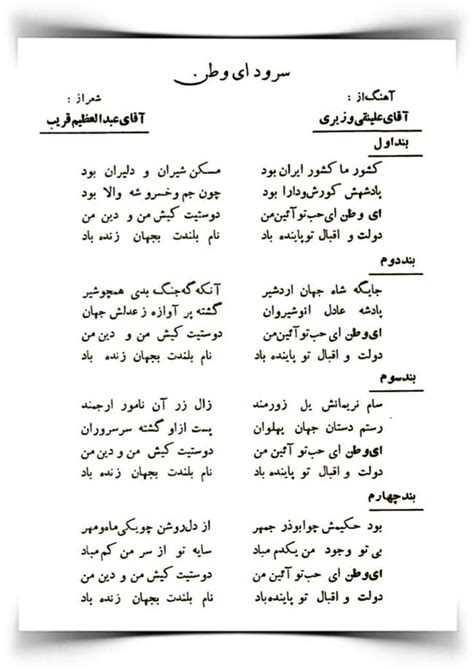 سرود ای وطن
آهنگ از : شعر از :
آقای علینقی وزیری آقای عبدالعظیم قریب
بند اول
کشور ما کشور ایران بود مسکن شیران و دلیران بود
پادشهش کورش و دارا بود چون جم و خسرو شه والا بود
ای وطن ای حب تو آئین من دوستیت کیش من و دین من
دولت و اقبال تو پاینده باد نام بلندت بجهان زنده باد
بند دوم
جایگه شاه جهان اردشیر آنکه گه جنگ بدی همچو شیر
پادشه عادل انوشیروان گشته پر آوازه ز عدلش جهان
ای وطن ای حب تو آئین من دوستیت کیش من و دین من
دولت و اقبال تو پاینده باد نام بلندت بجهان زنده باد
بند سوم
سام نریمانش یل زورمند زال زر آن نامور ارجمند
رستم دستان جهان پهلوان پست ازاو گشته سر سروران
ای وطن ای حب تو آئین من دوستیت کیش من و دین من
دولت و اقبال تو پاینده باد نام بلندت بجهان زنده باد
بند چهارم
بود حکیمش چو ابوذر جمهر از دل روشن چو یکی ماه و مهر
بی تو وجود من یکدم مباد سایه تو از سر من کم مباد
ای وطن ای حب تو آئین من دوستیت کیش من و دین من
دولت و اقبال تو پاینده باد نام بلندت بجهان زنده باد